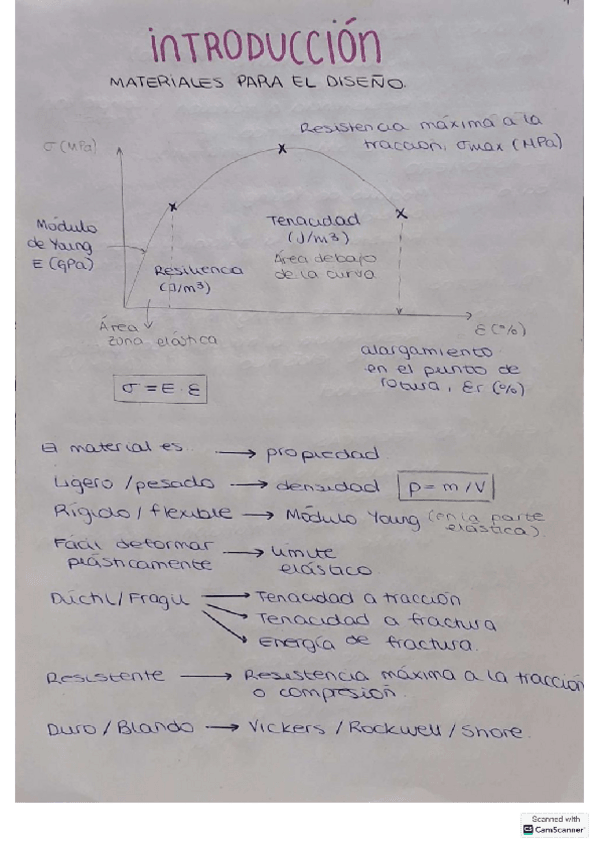 INTRODUCCIÓN
MATERIALES PARA EL DISEÑO.
Resistencia máxima a la
tracción, σmax (MPa)
σ (MPa)
Módulo
de Young
E (GPa)
Tenacidad
(J/m3)
Área debajo
de la curva
Resiliencia
(J/m3)
Área
zona elástica
ε (%)
alargamiento
en el punto de
rotura, εr (%)
σ = E · ε
El material es... → propiedad
Ligero / pesado → densidad ρ = m / V
Rígido / flexible → Módulo Young (en la parte
elástica)
Fácil deformar → Límite
plásticamente elástico.
Dúctil / Frágil → Tenacidad a tracción
→ Tenacidad a fractura
→ Energía de fractura.
Resistente → Resistencia máxima a la tracción
o compresión.
Duro / Blando → Vickers / Rockwell / Shore.
Scanned with
CS CamScanner